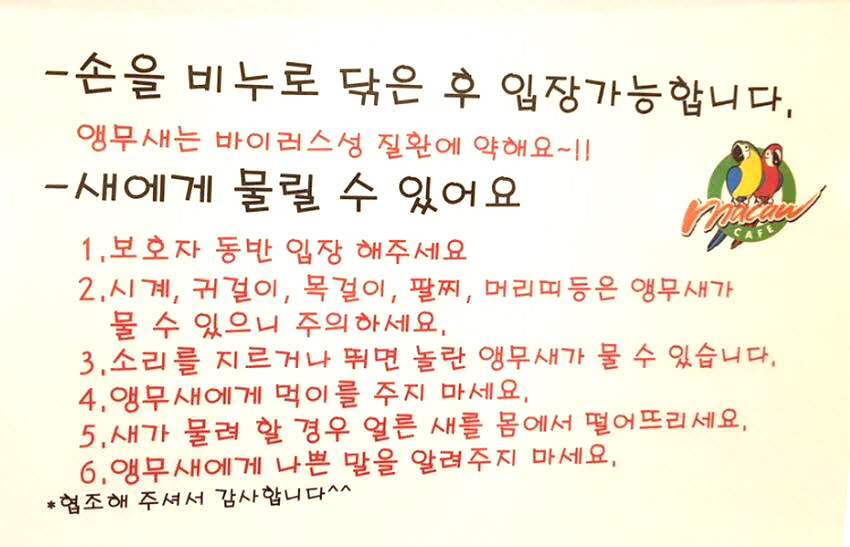 -손을 비누로 닦은 후 입장가능합니다.
앵무새는 바이러스성 질환에 약해요~!!
-새에게 물릴 수 있어요
macaw
CAFE
1.보호자 동반 입장 해주세요
2.시계, 귀걸이, 목걸이, 팔찌, 머리띠등은 앵무새가
물 수 있으니 주의하세요.
3.소리를 지르거나 뛰면 놀란 앵무새가 물 수 있습니다.
4.앵무새에게 먹이를 주지 마세요.
5.새가 물려 할 경우 얼른 새를 몸에서 떨어뜨리세요.
6.앵무새에게 나쁜 말을 알려주지 마세요.
*협조해 주셔서 감사합니다^^